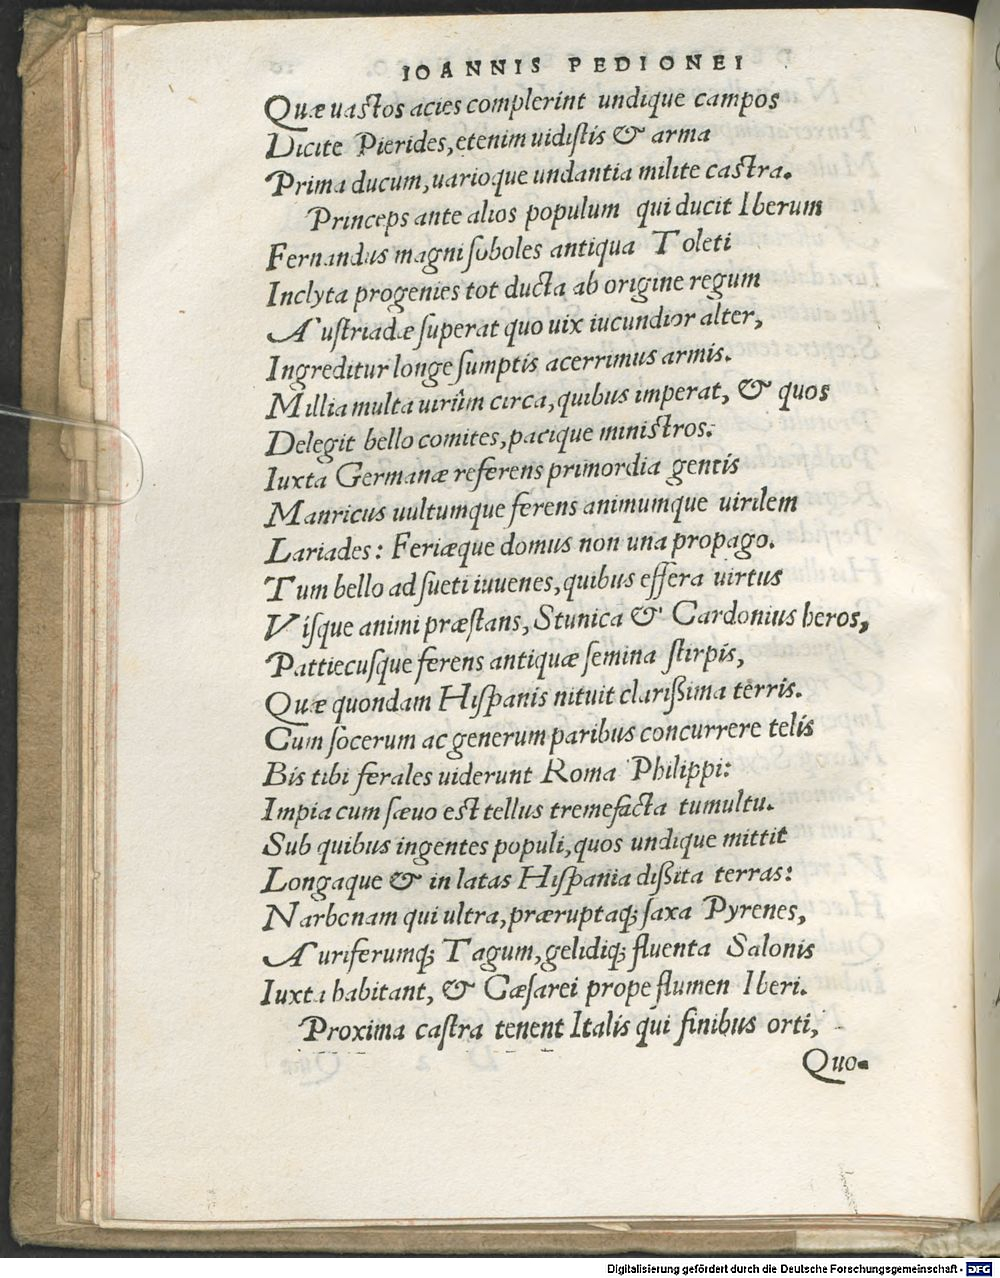 IOANNIS PEDIONEI
Quæ uastos acies complerint undique campos
Dicite Pierides, etenim uidistis & arma
Prima ducum, uarioque undantia milite castra.
Princeps ante alios populum qui ducit Iberum
Fernandus magni soboles antiqua Toleti
Inclyta progenies tot ducta ab origine regum
Austriadæ superat quo uix iucundior alter,
Ingreditur longe sumptis acerrimus armis.
Millia multa uirûm circa, quibus imperat, & quos
Delegit bello comites, pacique ministros:
Iuxta Germanæ referens primordia gentis
Manricus uultumque ferens animumque uirilem
Lariades: Feriæque domus non una propago.
Tum bello adsueti iuuenes, quibus effera uirtus
Visque animi præstans, Stunica & Cardonius heros,
Pattiecusque ferens antiquæ semina stirpis,
Quæ quondam Hispanis nituit clarißima terris.
Cum socerum ac generum paribus concurrere telis
Bis tibi ferales uiderunt Roma Philippi:
Impia cum sæuo est tellus tremefacta tumultu.
Sub quibus ingentes populi, quos undique mittit
Longaque & in latas Hispania dißita terras:
Narbonam qui ultra, præruptaq; saxa Pyrenes,
Auriferumq; Tagum, gelidiq; fluenta Salonis
Iuxta habitant, & Cæsarei prope flumen Iberi.
Proxima castra tenent Italis qui finibus orti,
Quo-
Digitalisierung gefördert durch die Deutsche Forschungsgemeinschaft - DFG